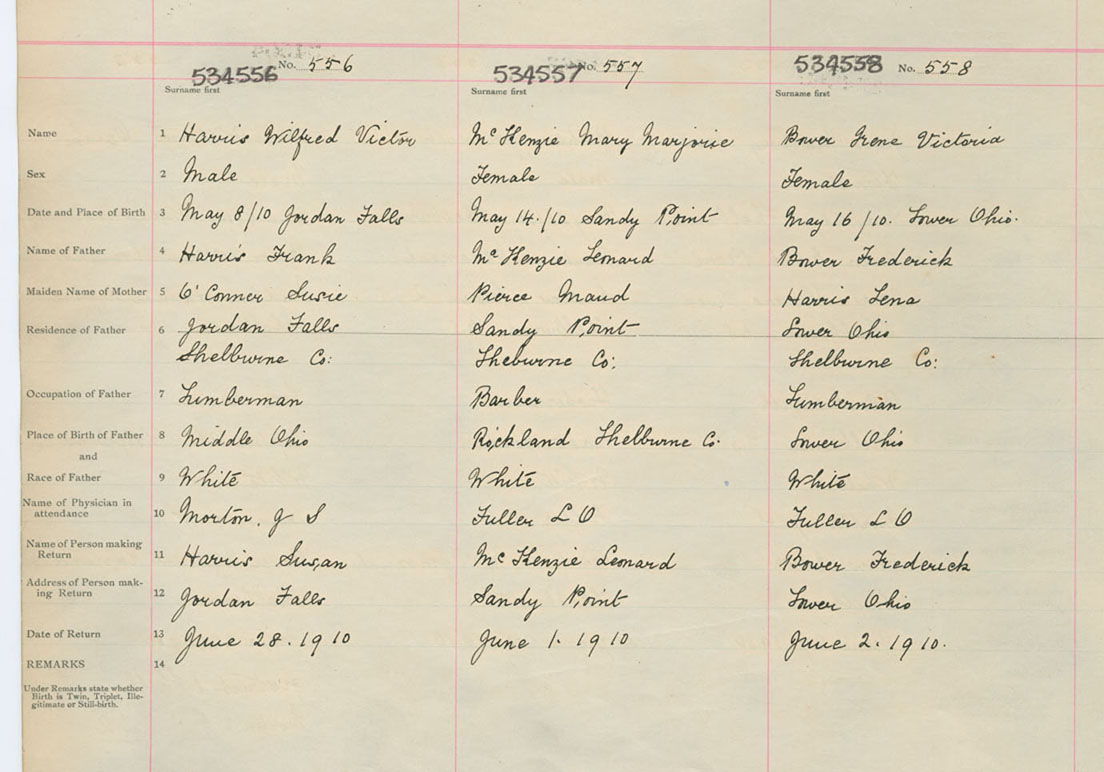 534556 No. 556 534557 No. 557 534558 No. 558
Surname first Surname first Surname first
Name 1 Harris Wilfred Victor McKenzie Mary Marjorie Bower Irene Victoria
Sex 2 Male Female Female
Date and Place of Birth 3 May 8/10 Jordan Falls May 14./10 Sandy Point May 16/10. Lower Ohio.
Name of Father 4 Harris Frank McKenzie Leonard Bower Frederick
Maiden Name of Mother 5 O'Conner Susie Pierce Maud Harris Lena
Residence of Father 6 Jordan Falls Sandy Point Lower Ohio
Shelburne Co: Sheburne Co: Shelburne Co:
Occupation of Father 7 Lumberman Barber Lumberman
Place of Birth of Father 8 Middle Ohio Rockland Shelburne Co. Lower Ohio
and
Race of Father 9 White White White
Name of Physician in
attendance 10 Morton, J S Fuller L O Fuller L O
Name of Person making
Return 11 Harris Susan McKenzie Leonard Bower Frederick
Address of Person mak-
ing Return 12 Jordan Falls Sandy Point Lower Ohio
Date of Return 13 June 28. 1910 June 1. 1910 June 2. 1910.
REMARKS 14
Under Remarks state whether
Birth is Twin, Triplet, Ille-
gitimate or Still-birth.